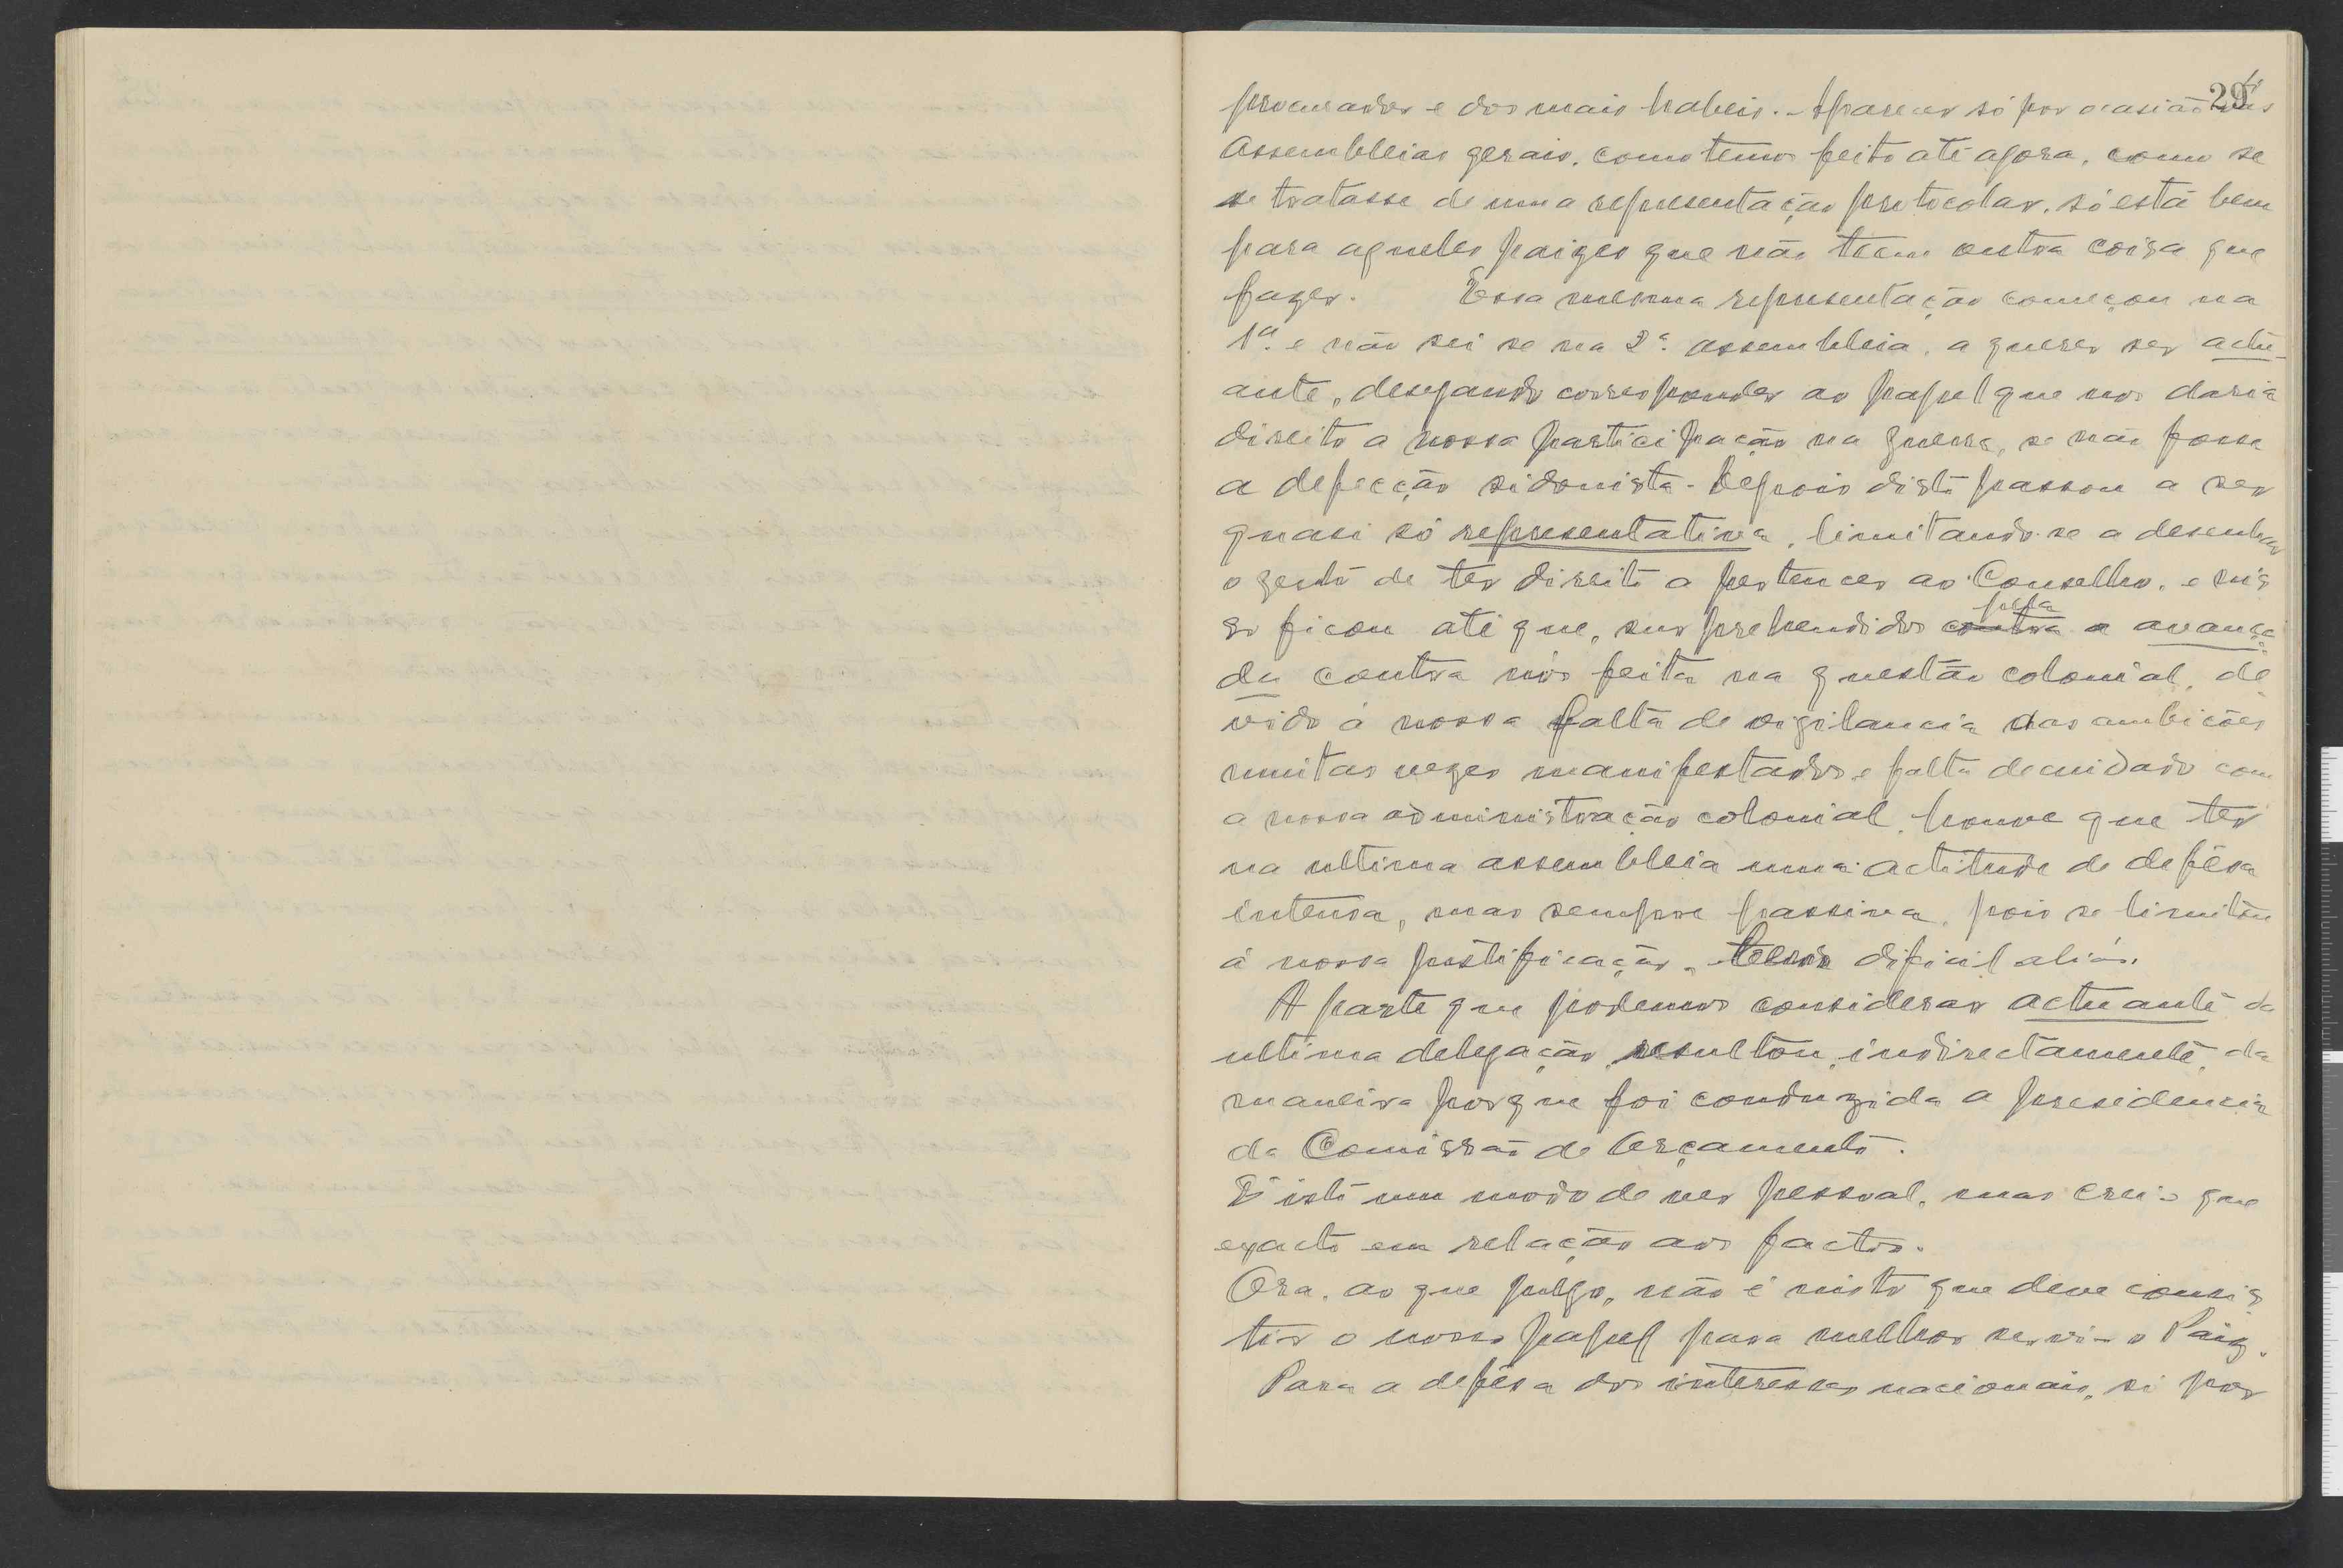 29
procurador e dos mais habeis. - Aparecer só por ocasião das
Assembleias gerais, como temos feito até agora, como se
se tratasse de uma representação protocolar, só está bem
para aqueles paizes que não teem outra coisa que
fazer. Essa mesma representação começou na
1ª e não sei se na 2ª assembleia, a querer ser actu-
ante, desejando corresponder ao papel que nos daria
direito a nossa participação na guerra, se não fosse
a defecção sidonista. Depois disto passou a ser
quasi só representativa, limitando-se a desenhar
o gesto de ter direito a pertencer ao Conselho. e nis
so ficou até que, surprehendidos contra a pela avança
da contra nós feita na questão colonial, de
vido á nossa falta de vigilancia das ambições
muitas vezes manifestadas e falta de cuidado com
a nossa administração colonial, houve que ter
na ultima assembleia uma actitude de defêsa
intensa, mas sempre passiva, pois se limitou
á nossa justificação, dificil aliás.
A parte que podemos considerar actuante da
ultima delegação, resultou, indirectamente, da
maneira porque foi conduzida a presidencia
da Comissão de Orçamento.
É isto um modo de ver pessoal, mas creio que
exacto em relação aos factos.
Ora, ao que julgo, não é nisto que deve consis
tir o nosso papel para melhor servir o Paiz.
Para a defêsa dos interesses nacionais, si por